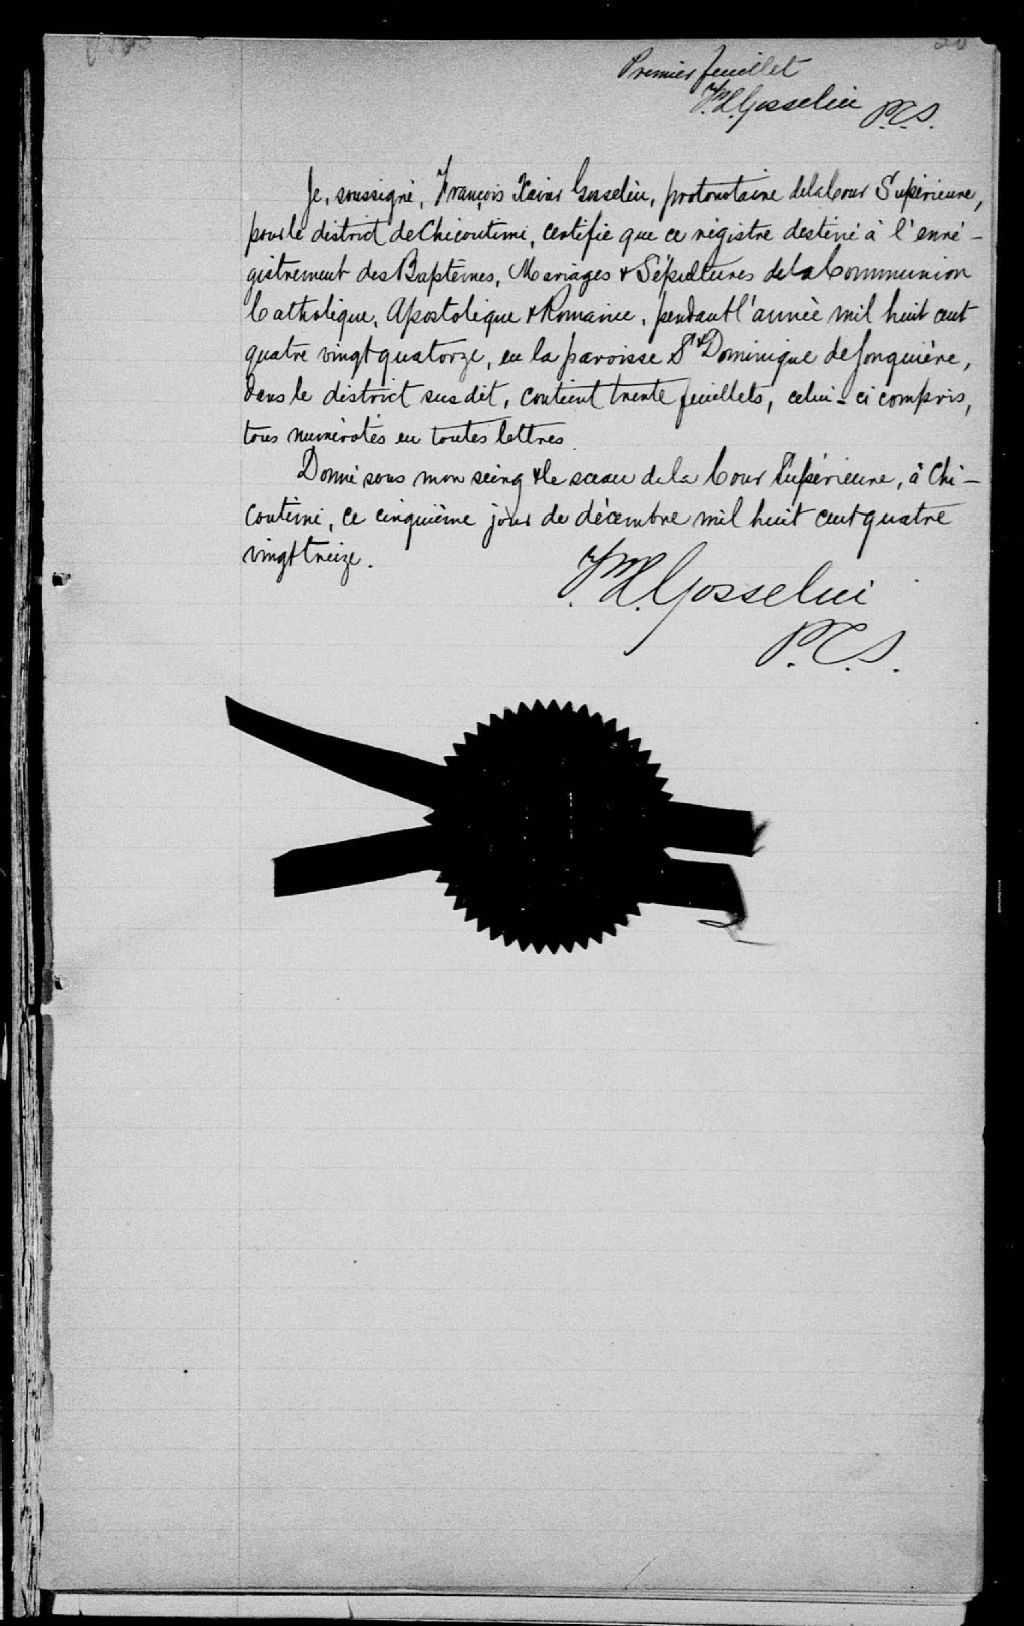 Premier feuillet
F.X.Gosselin P.C.S.
Je, soussigné, François Xavier Gosselin, protonotaire de la Cour Supérieure,
pour le district de Chicoutimi, certifie que ce régistre destiné à l'enré-
gistrement des Baptêmes, Mariages & Sépultures de la Communion
Catholique, Apostolique & Romaine, pendant l'année mil huit cent
quatre vingt quatorze, en la paroisse St Dominique de Jonquière,
dans le district susdit, contient trente feuillets, celui-ci compris,
tous numérotés en toutes lettres.
Donné sous mon seing & le sceau de la Cour Supérieure, à Chi-
coutimi, ce cinquième jour de décembre mil huit cent quatre
vingt treize.
F.X.Gosselin
P.C.S.